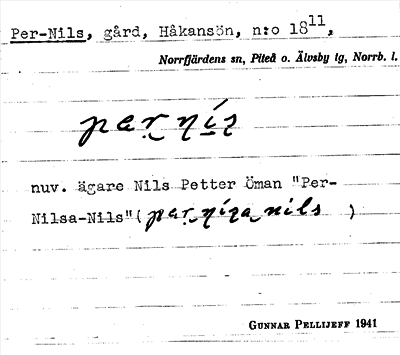 Per-Nils, gård, Håkansön, n:o 18¹¹,
Norrfjärdens sn, Piteå o. Älvsby tg, Norrb. l.
nuv. ägare Nils Petter Öman "Per-
Nilsa-Nils"( nils )
GUNNAR PELLIJEFF 1941